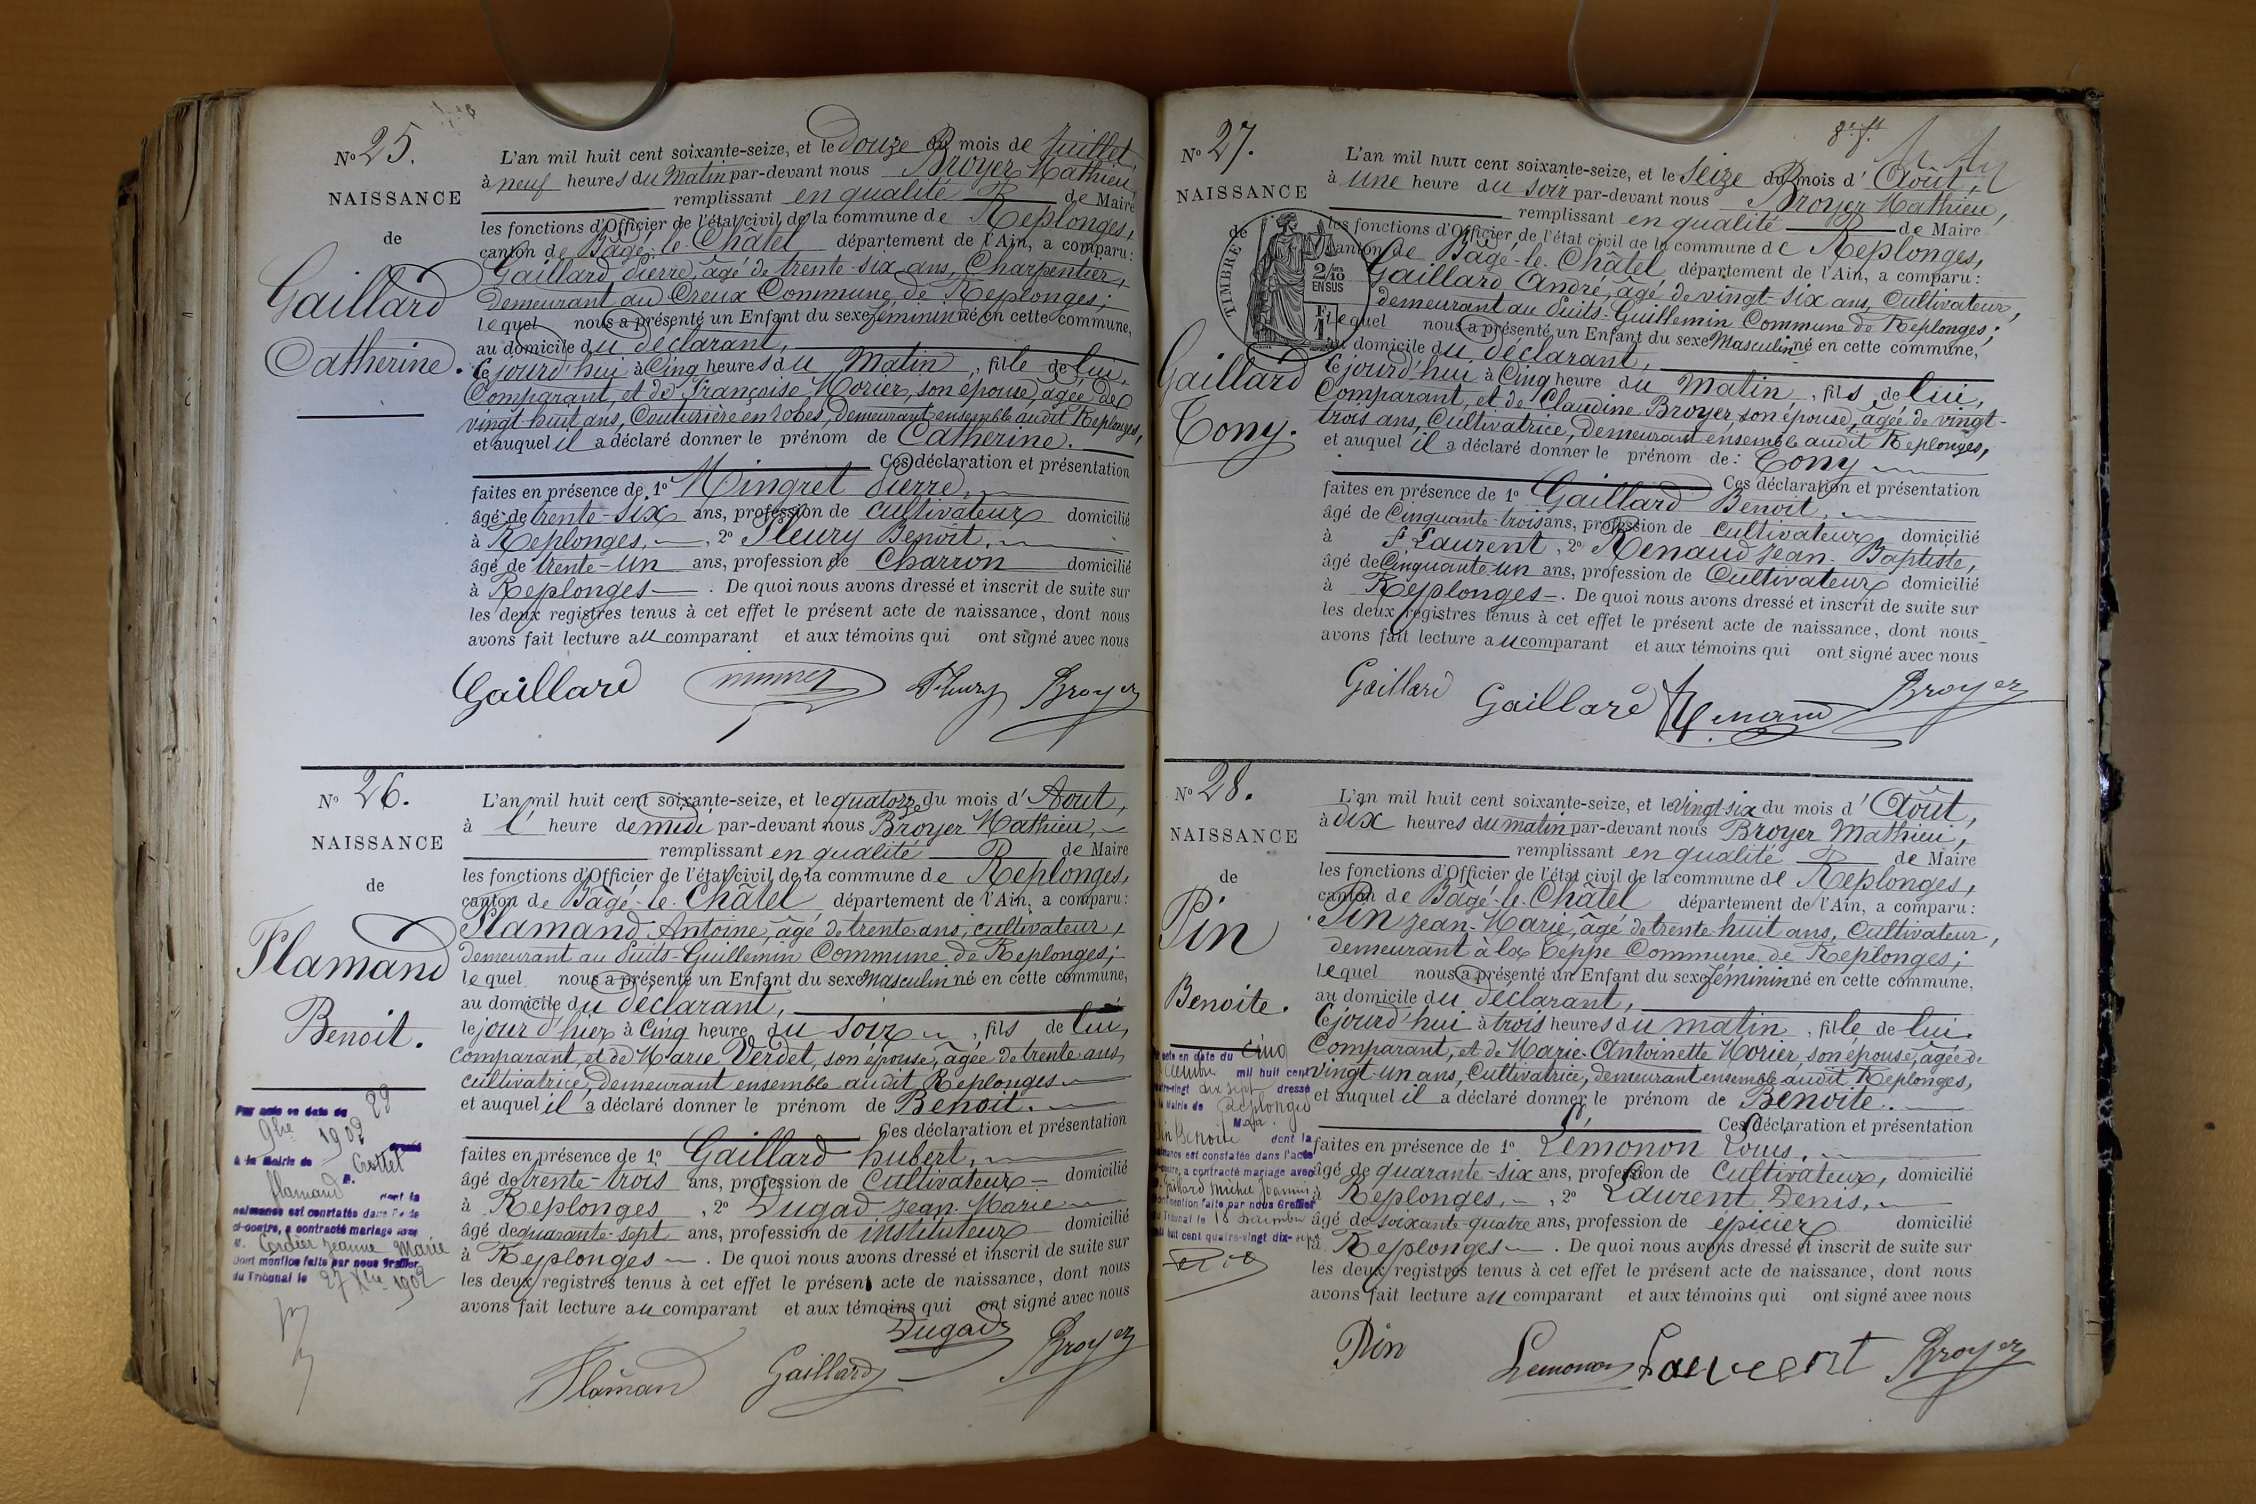 No 25.
NAISSANCE
de
Gaillard
Catherine.
L'an mil huit cent soixante-seize, et le douze du mois de Juillet,
à neuf heures du Matin par-devant nous Broyer Mathieu,
remplissant en qualité de Maire
les fonctions d'Officier de l'état civil de la commune de Replonges,
canton de Bâgé-le-Châtel département de l'Ain, a comparu:
Gaillard Pierre, âgé de trente-six ans, Charpentier,
demeurant au Creux Commune de Replonges;
lequel nous a présenté un Enfant du sexe féminin né en cette commune,
au domicile du déclarant,
Cejourd'hui à Cinq heures du Matin, fille de lui,
Comparant, et de Françoise Morier, son épouse, âgée de
vingt-huit ans, Couturière en robes, demeurant ensemble audit Replonges,
et auquel il a déclaré donner le prénom de Catherine.
Ces déclaration et présentation
faites en présence de 1o Mingret Pierre,
âgé de trente-six ans, profession de cultivateur domicilié
à Replonges, 2o Fleury Benoit,
âgé de trente-un ans, profession de Charron domicilié
à Replonges. De quoi nous avons dressé et inscrit de suite sur
les deux registres tenus à cet effet le présent acte de naissance, dont nous
avons fait lecture au comparant et aux témoins qui ont signé avec nous
Gaillard Fleury Broyer
No 26.
NAISSANCE
de
Flamand
Benoit.
L'an mil huit cent soixante-seize, et le quatorze du mois d'Août,
à l' heure de midi par-devant nous Broyer Mathieu,
remplissant en qualité de Maire
les fonctions d'Officier de l'état civil de la commune de Replonges,
canton de Bâgé-le-Châtel département de l'Ain, a comparu:
Flamand Antoine, âgé de trente ans, cultivateur,
demeurant au Puits-Guillemin Commune de Replonges;
lequel nous a présenté un Enfant du sexe Masculin né en cette commune,
au domicile du déclarant,
le jour d'hier à Cinq heure du soir, fils de lui,
comparant, et de Marie Verdet, son épouse, âgée de trente ans,
cultivatrice, demeurant ensemble audit Replonges
et auquel il a déclaré donner le prénom de Benoit.
Ces déclaration et présentation
faites en présence de 1o Gaillard hubert,
âgé de trente-trois ans, profession de Cultivateur domicilié
à Replonges, 2o Dugad Jean-Marie
âgé de quarante-sept ans, profession de instituteur domicilié
à Replonges. De quoi nous avons dressé et inscrit de suite sur
les deux registres tenus à cet effet le présent acte de naissance, dont nous
avons fait lecture au comparant et aux témoins qui ont signé avec nous
Dugad
Flaman Gaillard Broyer
Par acte en date du 29
9bre 1902 dressé
à la Mairie de Crottet
M. Flamand dont la
naissance est constatée dans l'acte
ci-contre, a contracté mariage avec
M. Cordier Jeanne Marie
Dont mention faite par nous Greffier
du Tribunal le 27 Xbre 1902
No 27.
NAISSANCE
de
TIMBRE
2/10
EN SUS
Gaillard
Tony.
L'an mil huit cent soixante-seize, et le Seize du mois d'Août,
à une heure du soir par-devant nous Broyer Mathieu,
remplissant en qualité de Maire
les fonctions d'Officier de l'état civil de la commune de Replonges,
canton de Bâgé-le-Châtel département de l'Ain, a comparu:
Gaillard André, âgé de vingt-six ans, Cultivateur,
demeurant au Puits-Guillemin Commune de Replonges;
lequel nous a présenté un Enfant du sexe Masculin né en cette commune,
au domicile du déclarant,
Cejourd'hui à Cinq heure du Matin, fils de lui,
Comparant, et de Claudine Broyer, son épouse, âgée de vingt-
trois ans, Cultivatrice, demeurant ensemble audit Replonges,
et auquel il a déclaré donner le prénom de: Tony
Ces déclaration et présentation
faites en présence de 1o Gaillard Benoit,
âgé de Cinquante-trois ans, profession de cultivateur domicilié
à St Laurent, 2o Renaud Jean-Baptiste,
âgé de Cinquante-un ans, profession de Cultivateur domicilié
à Replonges. De quoi nous avons dressé et inscrit de suite sur
les deux registres tenus à cet effet le présent acte de naissance, dont nous
avons fait lecture au comparant et aux témoins qui ont signé avec nous
Gaillard Gaillard Renaud Broyer
No 28.
NAISSANCE
de
Pin
Benoite.
L'an mil huit cent soixante-seize, et le Vingt-six du mois d'Août,
à dix heures du matin par-devant nous Broyer Mathieu,
remplissant en qualité de Maire
les fonctions d'Officier de l'état civil de la commune de Replonges,
canton de Bâgé-le-Châtel département de l'Ain, a comparu:
Pin Jean-Marie, âgé de trente-huit ans, Cultivateur,
demeurant à la Teppe Commune de Replonges;
lequel nous a présenté un Enfant du sexe féminin né en cette commune,
au domicile du déclarant,
Cejourd'hui à trois heures du matin, fille de lui.
Comparant, et de Marie-Antoinette Morier, son épouse, âgée de
vingt-un ans, Cultivatrice, demeurant ensemble audit Replonges,
et auquel il a déclaré donner le prénom de Benoite.
Ces déclaration et présentation
faites en présence de 1o Lemonon Louis,
âgé de quarante-six ans, profession de Cultivateur, domicilié
à Replonges, 2o Laurent Denis,
âgé de soixante-quatre ans, profession de épicier domicilié
à Replonges. De quoi nous avons dressé et inscrit de suite sur
les deux registres tenus à cet effet le présent acte de naissance, dont nous
avons fait lecture au comparant et aux témoins qui ont signé avec nous
Pin Lemonon Laurent Broyer
acte en date du cinq
mil huit cent
quatre-vingt dix sept dressé
Mairie de Replonges
Pin Benoite dont la
naissance est constatée dans l'acte
ci-contre, a contracté mariage avec
Gaillard Michel Joanny
Dont mention faite par nous Greffier
du Tribunal le 18 Décembre
mil huit cent quatre-vingt dix-sept